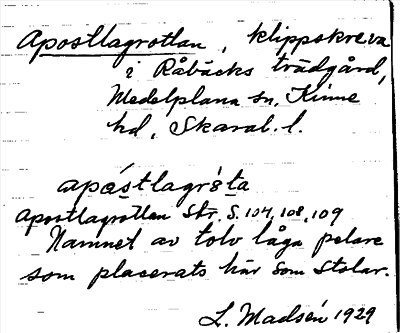 Apostlagrottan, klippskreva
i Råbäcks trädgård,
Medelplana sn, Kinne
hd, Skarab. l.
apåstlagròta
Apostlagrottan Str. S. 104, 108, 109
Namnet av tolv låga pelare
som placerats här som stolar.
L. Madsén 1929